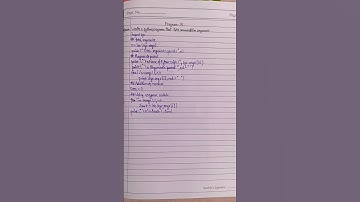 Program 10
write a python program that takes command line arguments
import sys
# total arguments
n = len(sys.argv)
print("Total arguments passed:", n)
# Arguments passed
print("\n Name of Python script:", sys.argv[0])
print("\n Arguments passed:", end=" ")
for i in range(1, n):
print(sys.argv[i], end=" ")
# Addition of numbers
Sum = 0
# Using argparse module
for i in range(1, n):
Sum += int(sys.argv[i])
print("\n\n Result:", Sum)